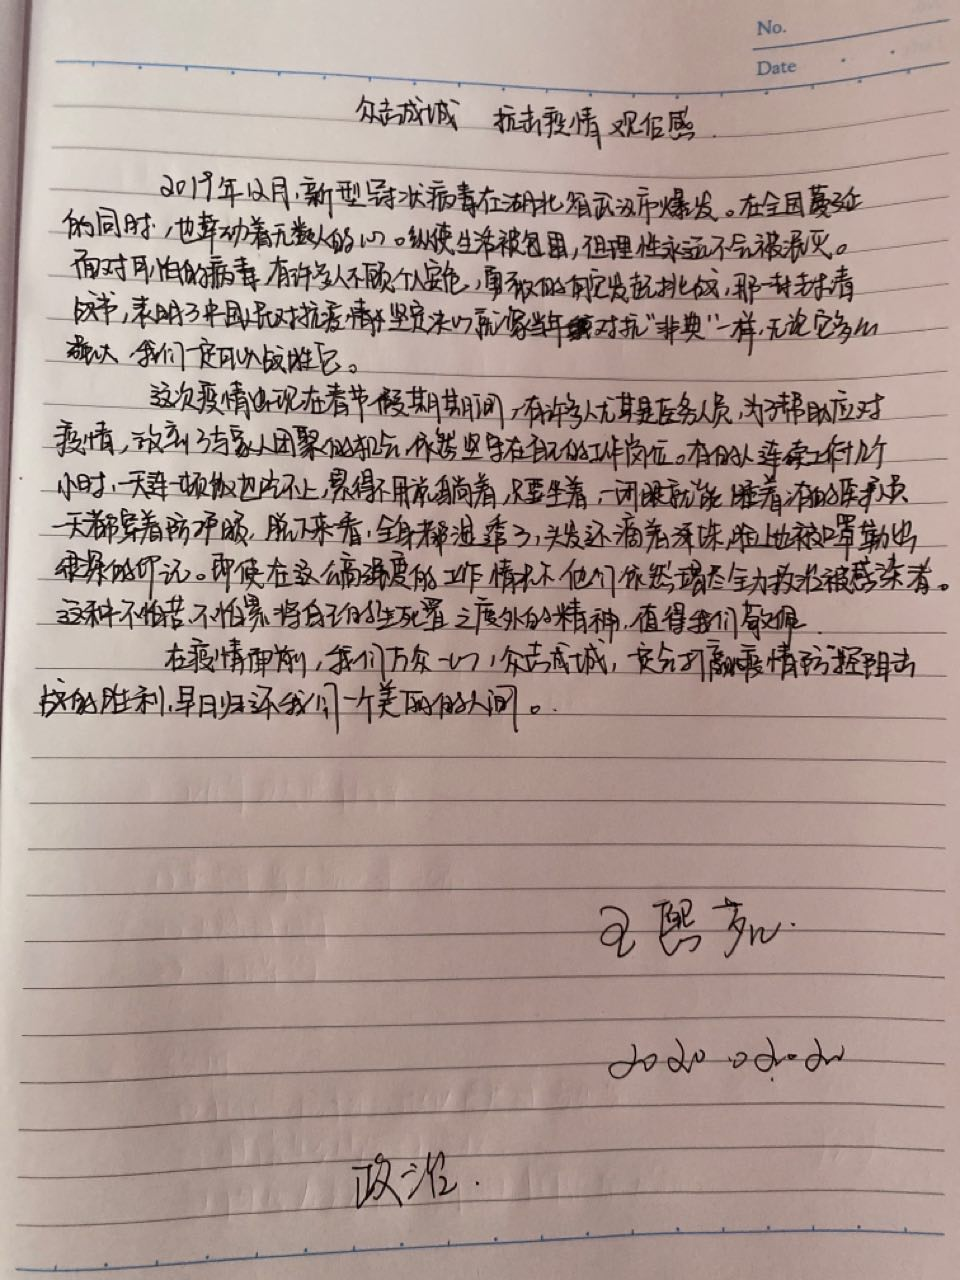 No.
Date
众志成城 抗击疫情 观后感
2019年12月,新型冠状病毒在湖北省武汉市爆发。在全国蔓延
的同时,也牵动着无数人的心。纵使生活被包围,但理性永远不会被泯灭。
面对可怕的病毒,有许多人不顾个人安危,勇敢的向它发起挑战,那一封封请
战书,表明了中国人民对抗疫情的坚定决心就像当年对抗"非典"一样,无论它多么
强大 我们一定可以战胜它。
这次疫情出现在春节假期期间,有许多人尤其是医务人员,为了帮助应对
疫情,放弃了与家人团聚的机会,依然坚守在自己的工作岗位。有的人连续工作几个
小时,一天连一顿饭也吃不上,累得不用说躺着,只要坐着,一闭眼就能睡着 有的医护员
一天都穿着防护服,脱下来看,全身都湿透了,头发还滴着汗珠,脸上也被口罩勒出
很深的印记。即使在这么高强度的工作情状下他们依然竭尽全力救治被感染者。
这种不怕苦,不怕累将自己的生死置之度外的精神,值得我们敬佩.
在疫情面前,我们万众一心,众志成城,一定会打赢疫情防控阻击
战的胜利,早日归还我们一个美丽的人间。
王熙
2020.02.22
政治.